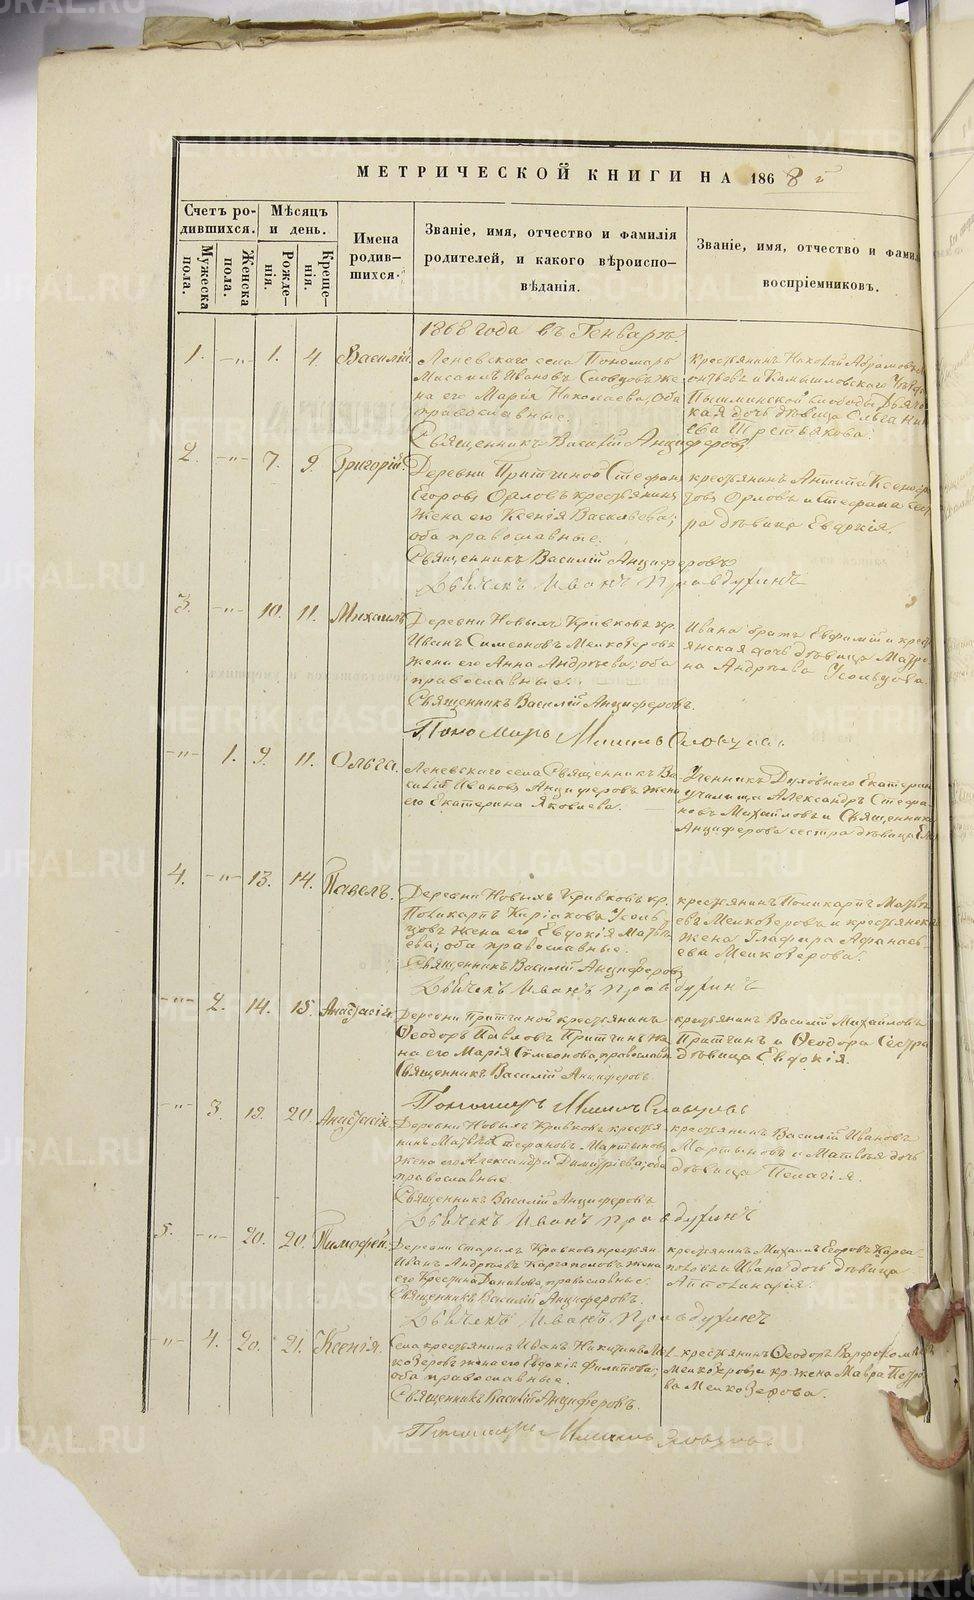 МЕТРИЧЕСКОЙ КНИГИ НА 1868 й
Счетъ ро-
дившихся.
Мѣсяцъ
и день.
Мужеска
пола.
Женска
пола.
Рожде-
нія.
Креще-
нія.
Имена
родив-
шихся.
Званіе, имя, отчество и фамилія
родителей, и какого вѣроиспо-
вѣданія.
Званіе, имя, отчество и фами
воспріемниковъ.
1868 года въ Генварѣ.
1. -„- 1. 4 Василій.
Леневскаго села Пономарь
Иванов Словцовъ же-
на его Марія Николаева, оба
православные.
Священникъ Василій Анциферовъ
крестьянинъ Николай
и Камышловскаго
Пышминской слободы
кая дочь дѣвица Ольга
Третьякова.
2. -„- 7. 9. Григорій.
Деревни Притчиной Стефан
Егоровъ Орловъ крестьянинъ
жена его Ксенія Васильева;
оба православные.
Священникъ Василій Анциферовъ
Иванъ Правдухинъ
крестьянинъ
Орловъ и Стефана сест
ра дѣвица Евдокія.
3. -„- 10. 11. Михаилъ
Деревни Новыхъ Кривковъ кр.
Иванъ Симеоновъ Мелкозеровъ
жена его Анна Андреева, оба
православные.
Священникъ Василій Анциферовъ.
Пономарь Словцовъ
Ивана братъ Евфимій и крест
янская дочь дѣвица Матро
на Андреева Усольцова.
-„- 1. 9. 11. Ольга.
Леневскаго села Священникъ Ва-
силій Ивановъ Анциферовъ жена
его Екатерина Яковлева.
Ученикъ Духовнаго Екатерин
училища Александръ Стефа-
новъ Михайловъ и Священника
Анциферова сестра дѣвица
4. -„- 13. 14. Павелъ.
Деревни Новыхъ Кривковъ кр.
Поликарпъ Киріаковъ Усоль
цовъ жена его Евдокія Матвѣ
ева; оба православные.
Священникъ Василій Анциферовъ
Иванъ Правдухинъ
крестьянинъ Поликарпъ Матвѣ
евъ Мелкозеровъ и крестьянска
жена Глафира Афанась
ева Мелкозерова.
-„- 2. 14. 15. Анастасія
Деревни Притчиной крестьянинъ
Ѳеодоръ Павловъ Притчинъ же
на его Марія Симеонова, православн
Священникъ Василій Анциферовъ
Пономарь Словцовъ
крестьянинъ Василій Михайловъ
Притчинъ и Ѳеодора Сестра
дѣвица Евдокія.
-„- 3. 19. 20. Анастасія.
Деревни Новыхъ Кривковъ крестья
нинъ Матвѣй Стефановъ Мартыновъ
жена его Александра Димитріева; оба
православные.
Священникъ Василій Анциферовъ
Иванъ Правдухинъ
крестьянинъ Василій Ивановъ
Мартыновъ и Матвѣя дочь
дѣвица Пелагія.
5. -„- 20. 20. Тимофей.
Деревни Старыхъ Кривковъ крестьян
Иванъ Андреевъ Каргаполовъ жена
его Крестина Данилова, православные.
Священникъ Василій Анциферовъ.
Иванъ Правдухинъ
крестьянинъ Михаилъ Егоровъ Карга-
половъ и Ивана дочь дѣвица
Апполинарія.
„- 4. 20. 21. Ксенія.
Села крестьянинъ Иванъ Никитинъ Мел
козеровъ жена его Евдокія Филипова;
оба православные.
Священникъ Василій Анциферовъ.
Пономарь Словцовъ
крестьянинъ Ѳеодоръ Варфоломѣ
Мелкозеровъ и кр. жена Мавра Петро
ва Мелкозерова.
METRIKI.GASO-URAL.RU